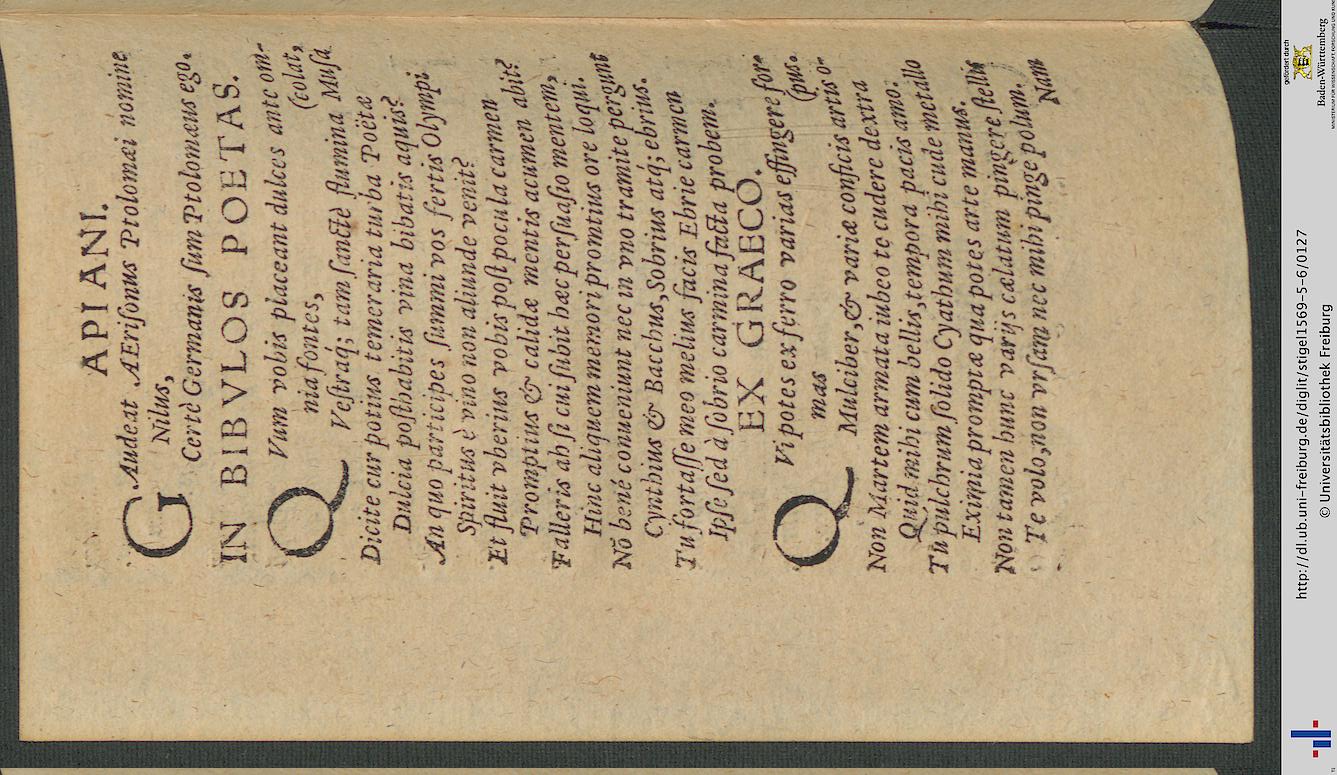 APIANI.
GAudeat AEriſonus Ptolomæi nomine
Nilus,
Certè Germanis ſum Ptolomæus ego.
IN BIBVLOS POETAS.
QVum vobis placeant dulces ante om-
nia fontes, (colat,
Veſtraq́; tam ſanctè flumina Muſa
Dicite cur potius temeraria turba Poëtæ
Dulcia poſthabitis vina bibatis aquis?
An quo participes ſummi vos fertis Olympi
Spiritus è vino non aliunde venit?
Et fluit vberius vobis poſt pocula carmen
Promptius & calidæ mentis acumen abit?
Falleris ah ſi cui ſubit hæc perſuaſio mentem,
Hinc aliquem memori promtius ore loqui.
Nō benè conueniunt nec in vno tramite pergunt
Cynthius & Bacchus, Sobrius atq́; ebrius.
Tu fortaſſe meo melius facis Ebrie carmen
Ipſe ſed à ſobrio carmina facta probem.
EX GRAECO.
QVi potes ex ferro varias effingere for-
mas (pus.
Mulciber, & variæ conficis artis o-
Non Martem armata iubeo te cudere dextra
Quid mihi cum bellis, tempora pacis amo.
Tu pulchrum ſolido Cyathum mihi cude metallo
Eximia promptæ qua potes arte manus.
Non tamen hunc varijs cælatum pingere ſtellis
Te volo, non vrſam nec mihi pinge polum.
Nam
gefördert durch
Baden-Württemberg
http://dl.ub.uni-freiburg.de/diglit/stigel1569-5-6/0127
© Universitätsbibliothek Freiburg